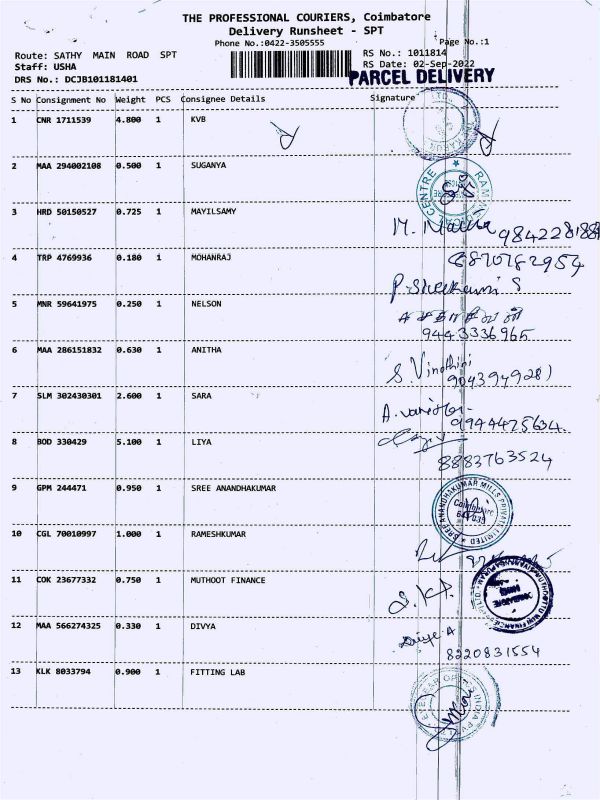 THE PROFESSIONAL COURIERS, Coimbatore
Delivery Runsheet - SPT
Phone No.:0422-3505555
Page No.:1
Route: SATHY MAIN ROAD SPT
RS No.: 1011814
Staff: USHA
RS Date: 02-Sep-2022
DRS No.: DCJB101181401
PARCEL DELIVERY
S No Consignment No Weight PCS Consignee Details Signature
1 CNR 1711539 4.800 1 KVB
2 MAA 294002108 0.500 1 SUGANYA
CENTRE
3 HRD 50150527 0.725 1 MAYILSAMY
4 TRP 4769936 0.180 1 MOHANRAJ
8870782954
5 MNR 59641975 0.250 1 NELSON
9443336965
6 MAA 286151832 0.630 1 ANITHA
S. Vinothini
9043949281
7 SLM 302430301 2.600 1 SARA
9944475634
8 BOD 330429 5.100 1 LIYA
8883763524
9 GPM 244471 0.950 1 SREE ANANDHAKUMAR
SREE ANANDHAKUMAR MILLS PRIVATE LIMITED
Coimbatore
641 035
10 CGL 70010997 1.000 1 RAMESHKUMAR
11 COK 23677332 0.750 1 MUTHOOT FINANCE
12 MAA 566274325 0.330 1 DIVYA
Divya A
8220831554
13 KLK 8033794 0.900 1 FITTING LAB